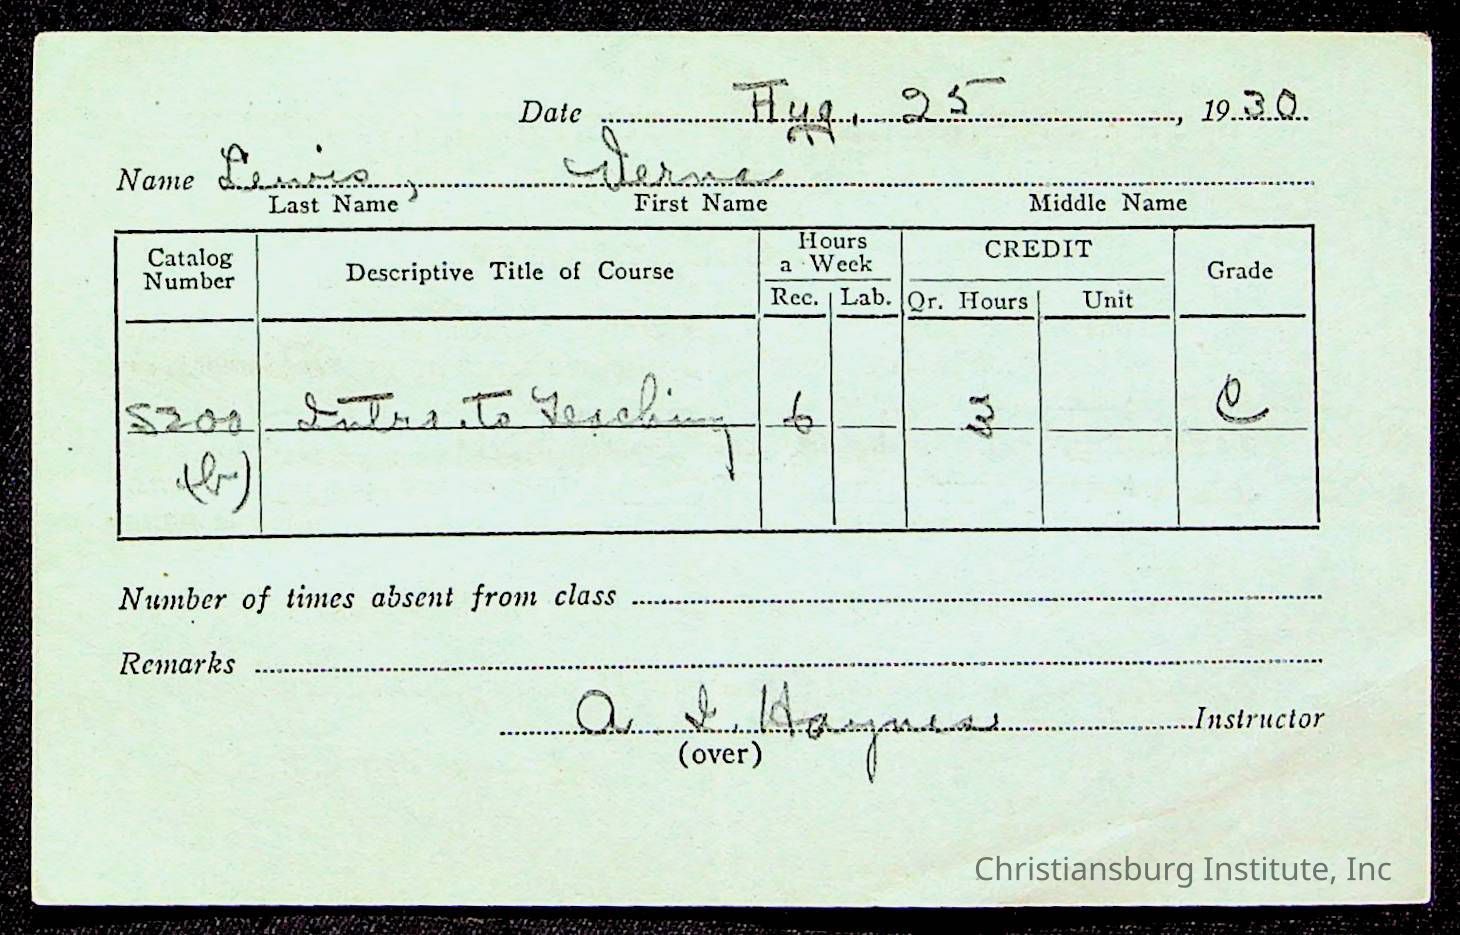 Date Aug. 25, 1930
Name Lewis, Verna
Last Name First Name Middle Name
Catalog Number Descriptive Title of Course Hours a Week CREDIT Grade
Rec. Lab. Qr. Hours Unit
S200 Intro. to Teaching 6 3 C
(b)
Number of times absent from class
Remarks
A. I. Haynes Instructor
(over)
Christiansburg Institute, Inc